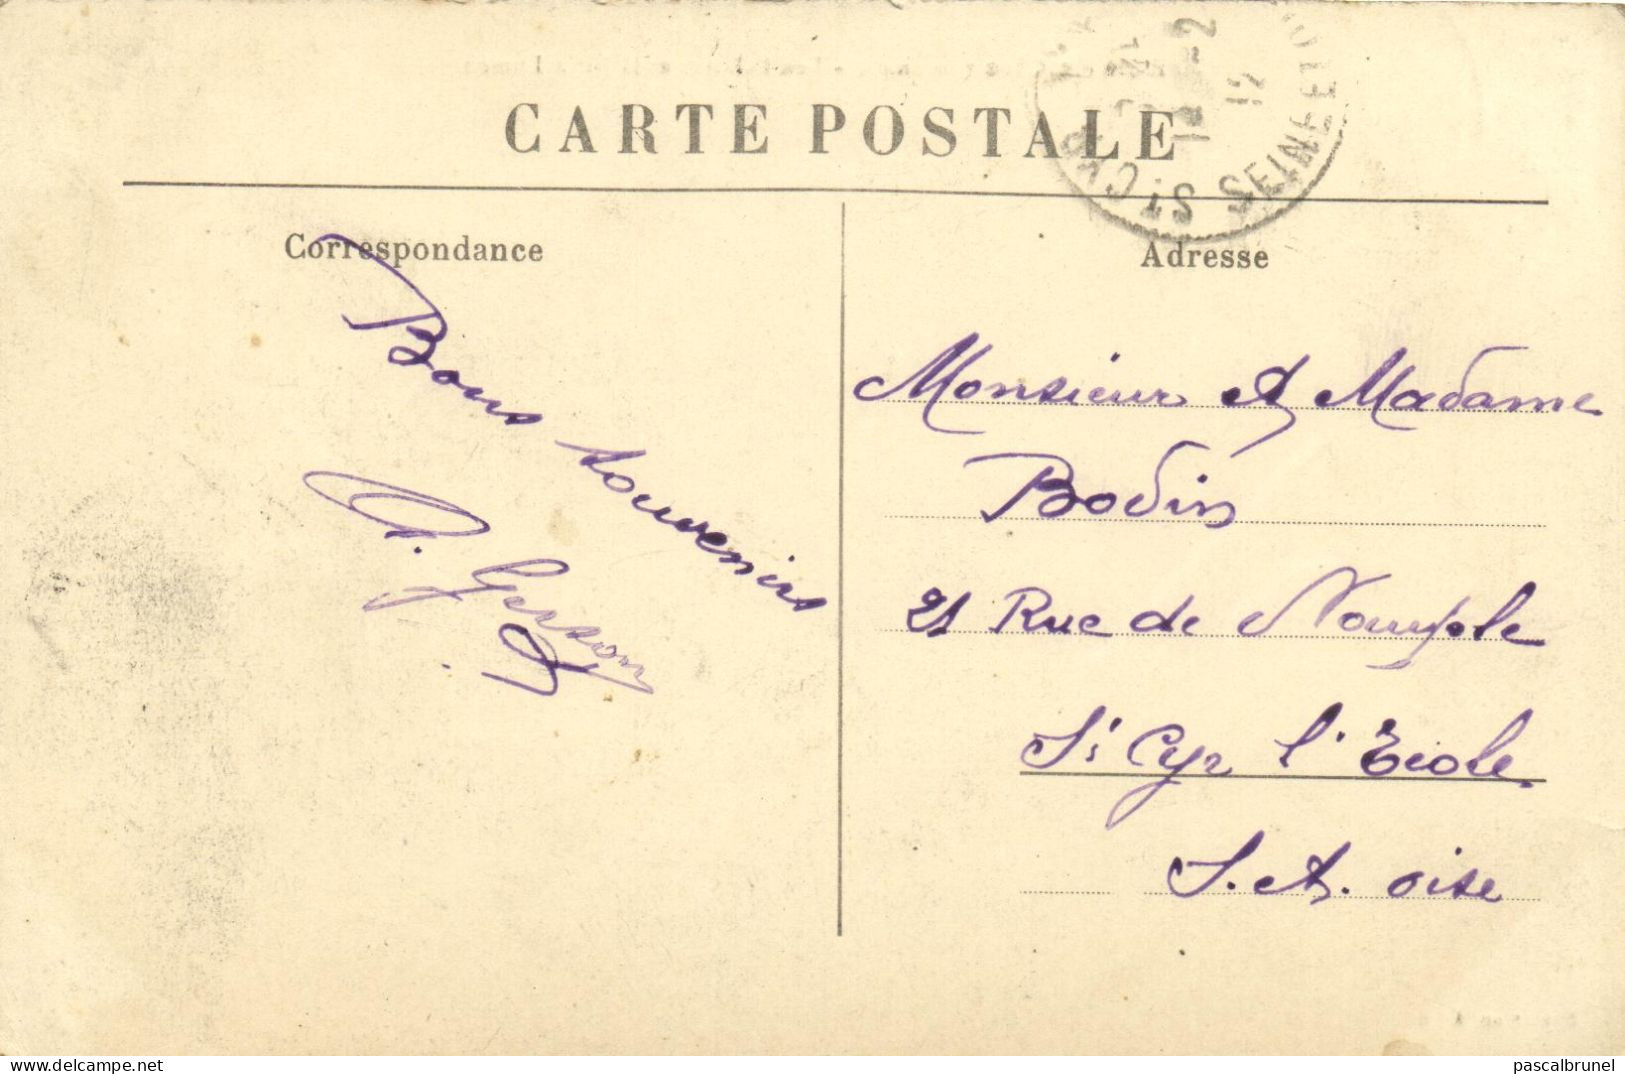 CARTE POSTALE
ST CYR SEINE ET OISE
12
Correspondance
Adresse
Bons souvenirs
Monsieur et Madame
Bodin
21 Rue de
St Cyr l'Ecole
S. et. oise
pascalbrunel